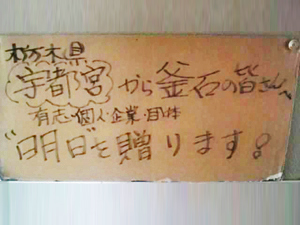 栃木県
宇都宮から釜石の皆さんへ
有志・個人・企業・団体
“明日”を贈ります!